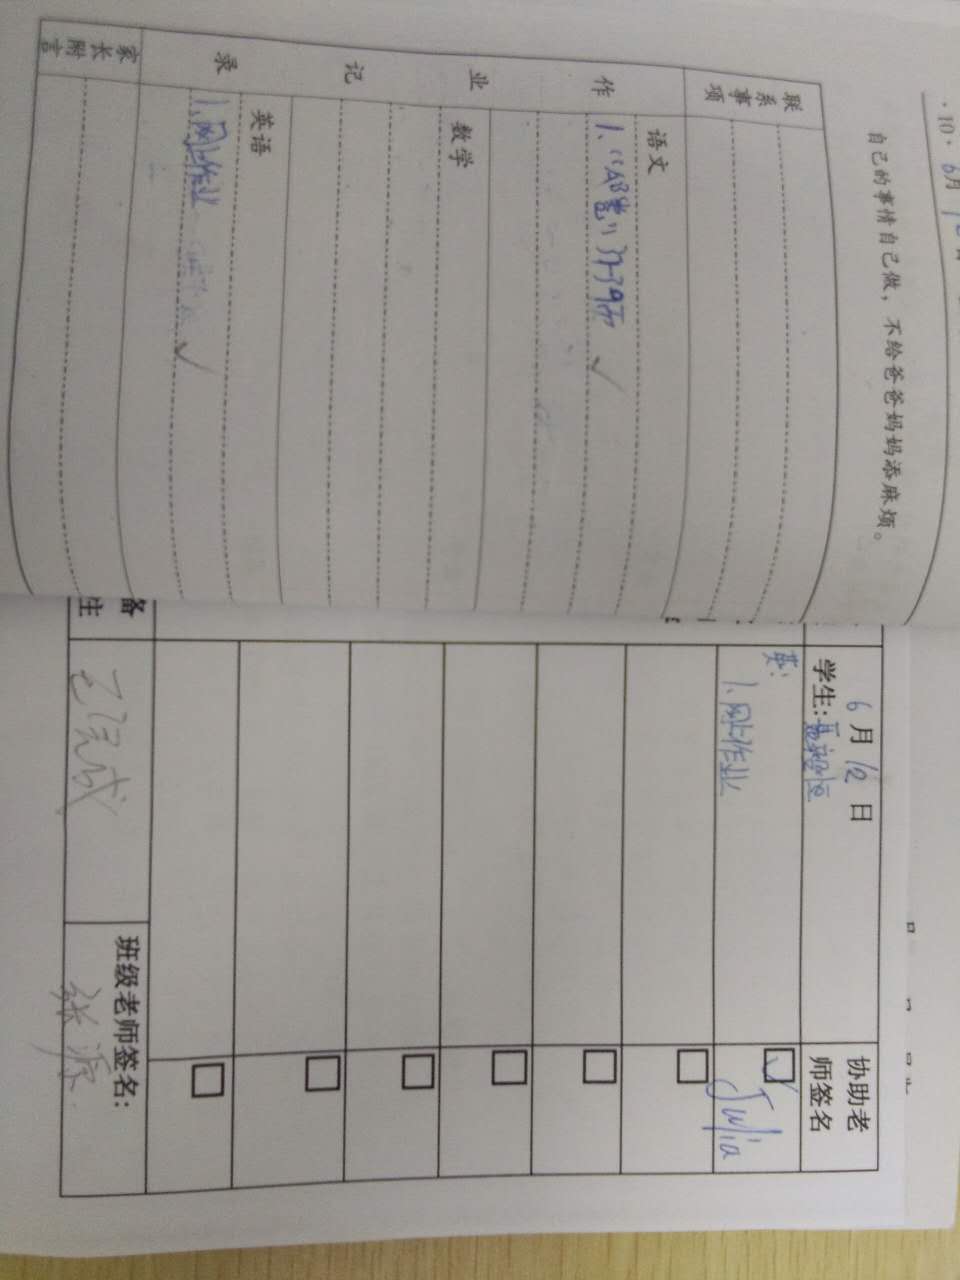 ·10· 6月12日
自己的事情自己做，不给爸爸妈妈添麻烦。
联系事项
作业记录
语文
1、《AB卷》37-39页 ✓
数学
英语
1、网上作业 ✓
家长附言
6月12日
学生:
协助老师签名
英:
1、网上作业
☑ Julia
□
□
□
□
□
□
备
注
已完成
班级老师签名: